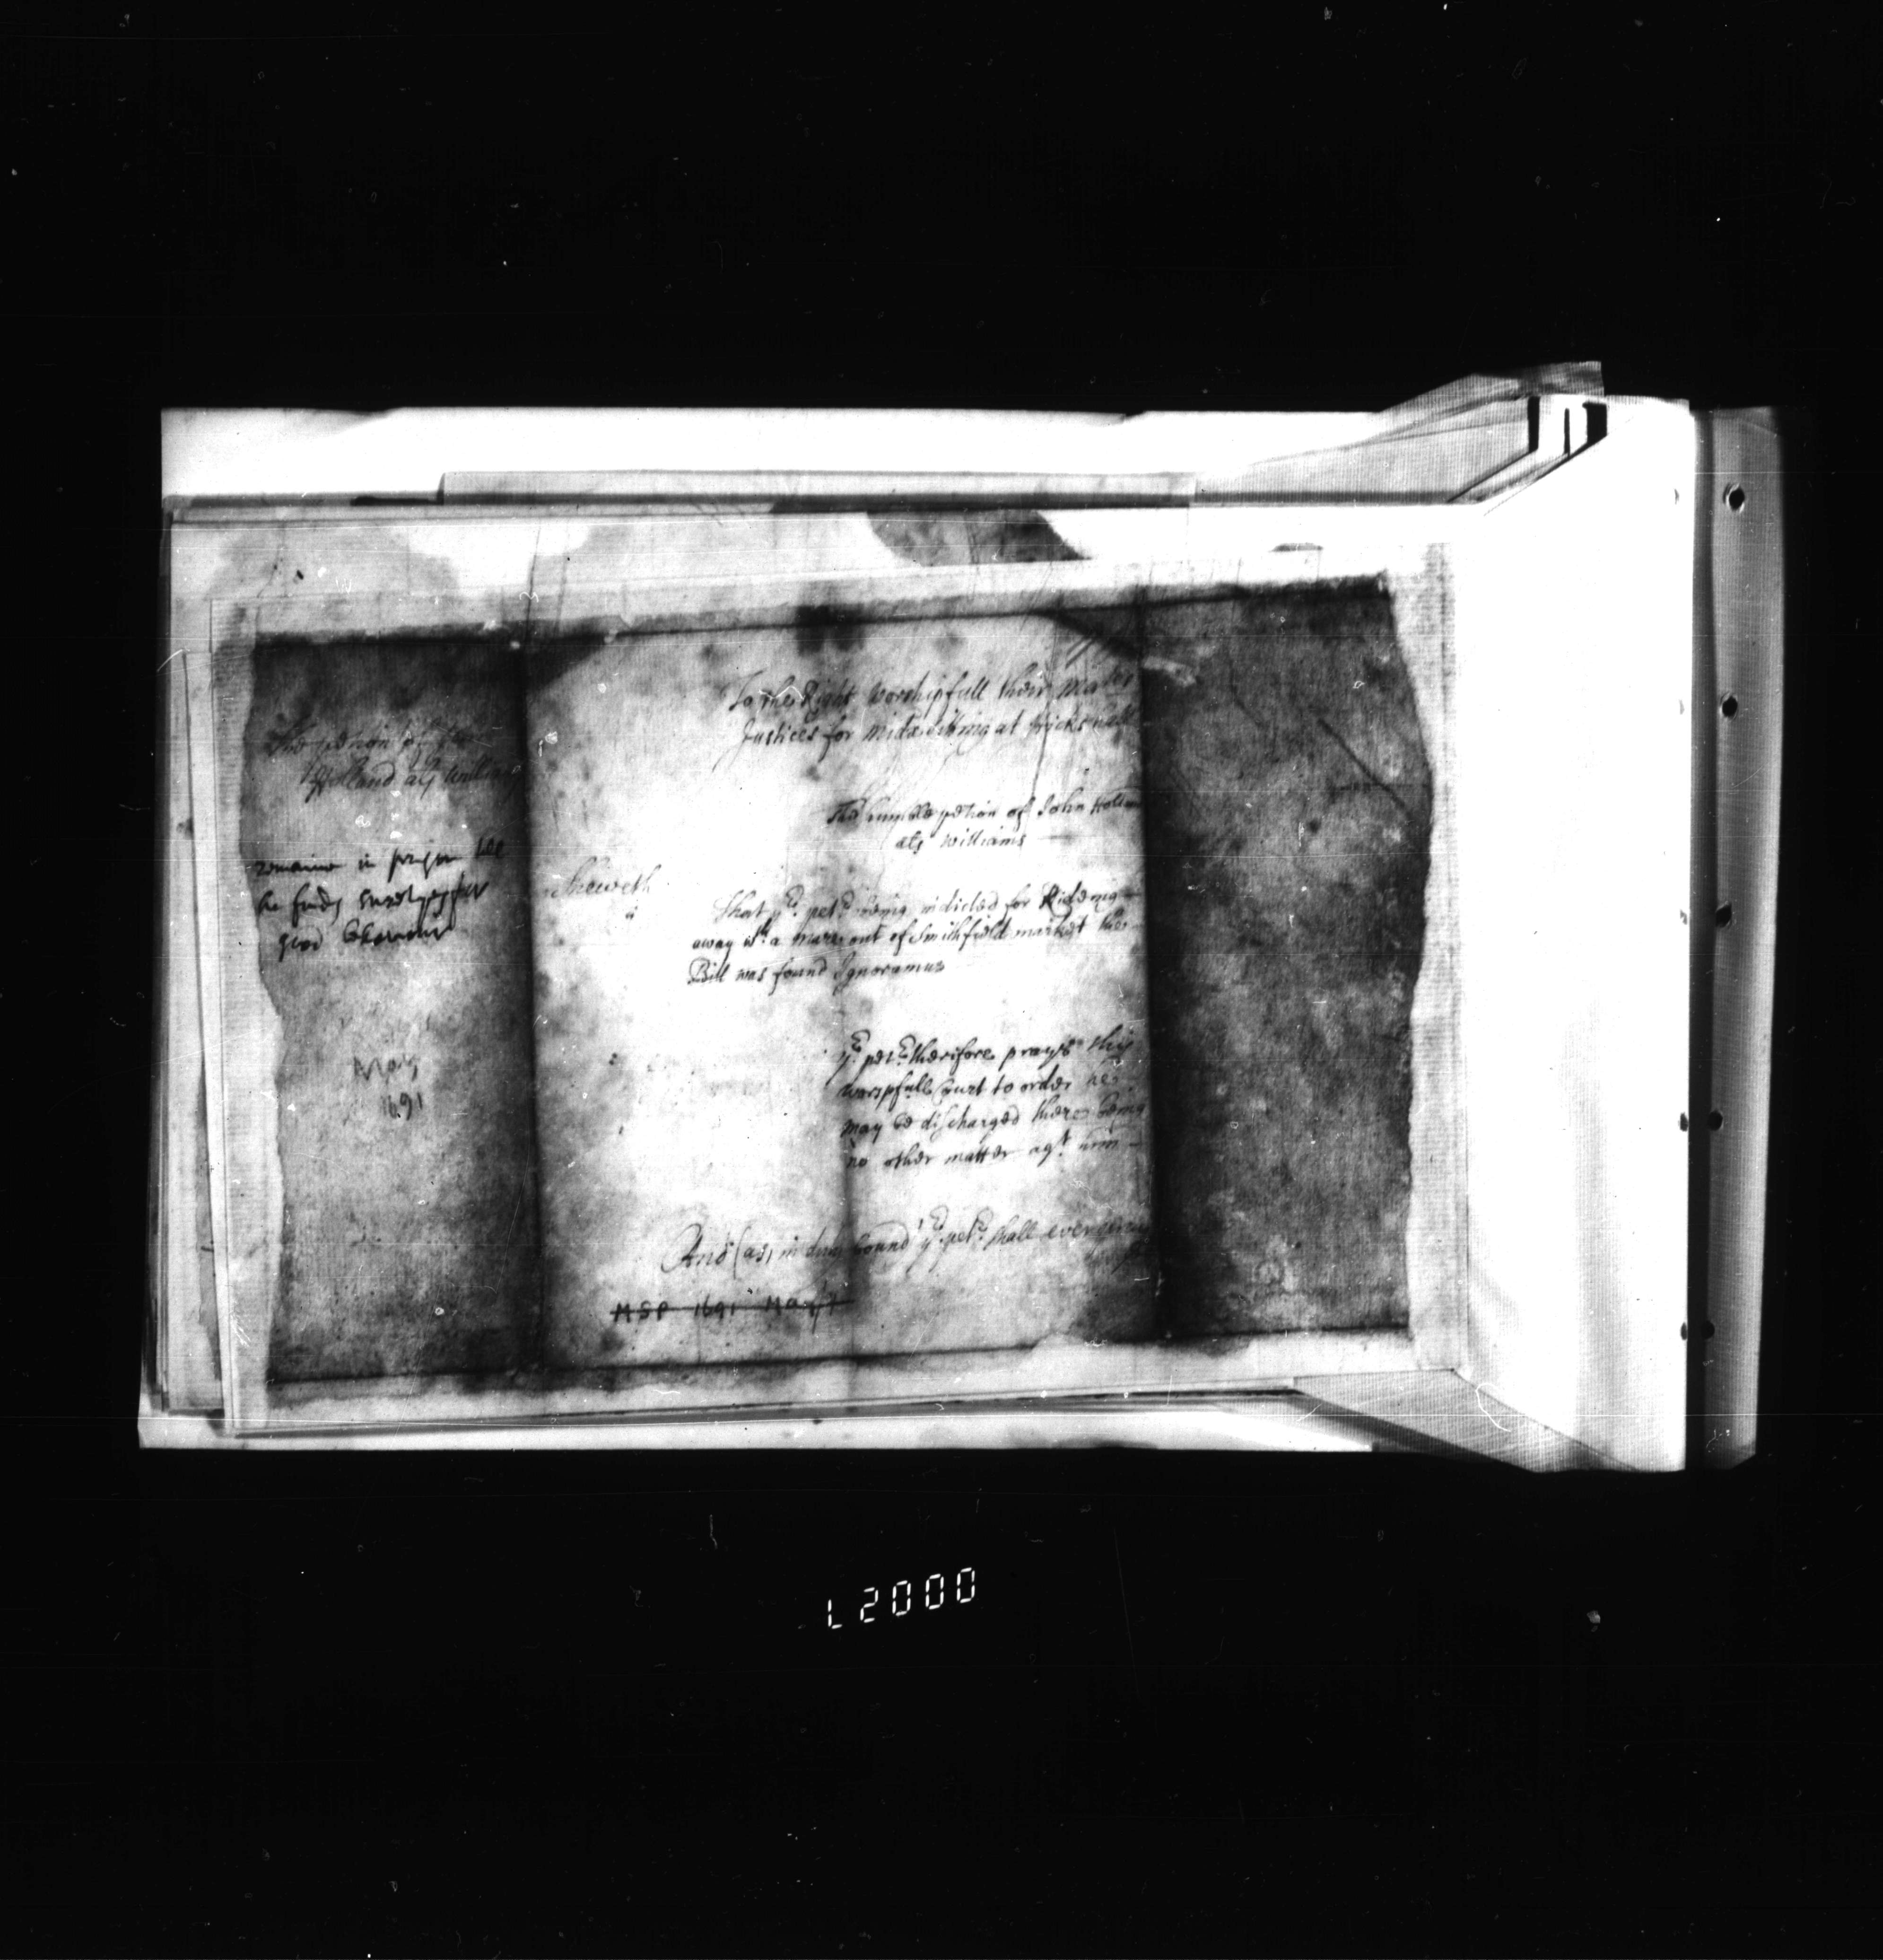 The petion of John
Holland als Williams
remaine in prison till
he finds suretyes for
good behaviour
May
1691
To the Right Worshipfull their Maties
Justices for Midx sitting at Hicks hall
The humble petion of John Hollan
als Williams
Sheweth
That yor petr being indicted for Rideing
away wth a mare out of Smithfield market the
Bill was found Ignoramus
yor petr therefore prayes this
worspfull Court to order he
may be discharged there being
no other matter agt him
And (as in duty bound) yor petr shall ever pray
MSP 1691 May/
L2000